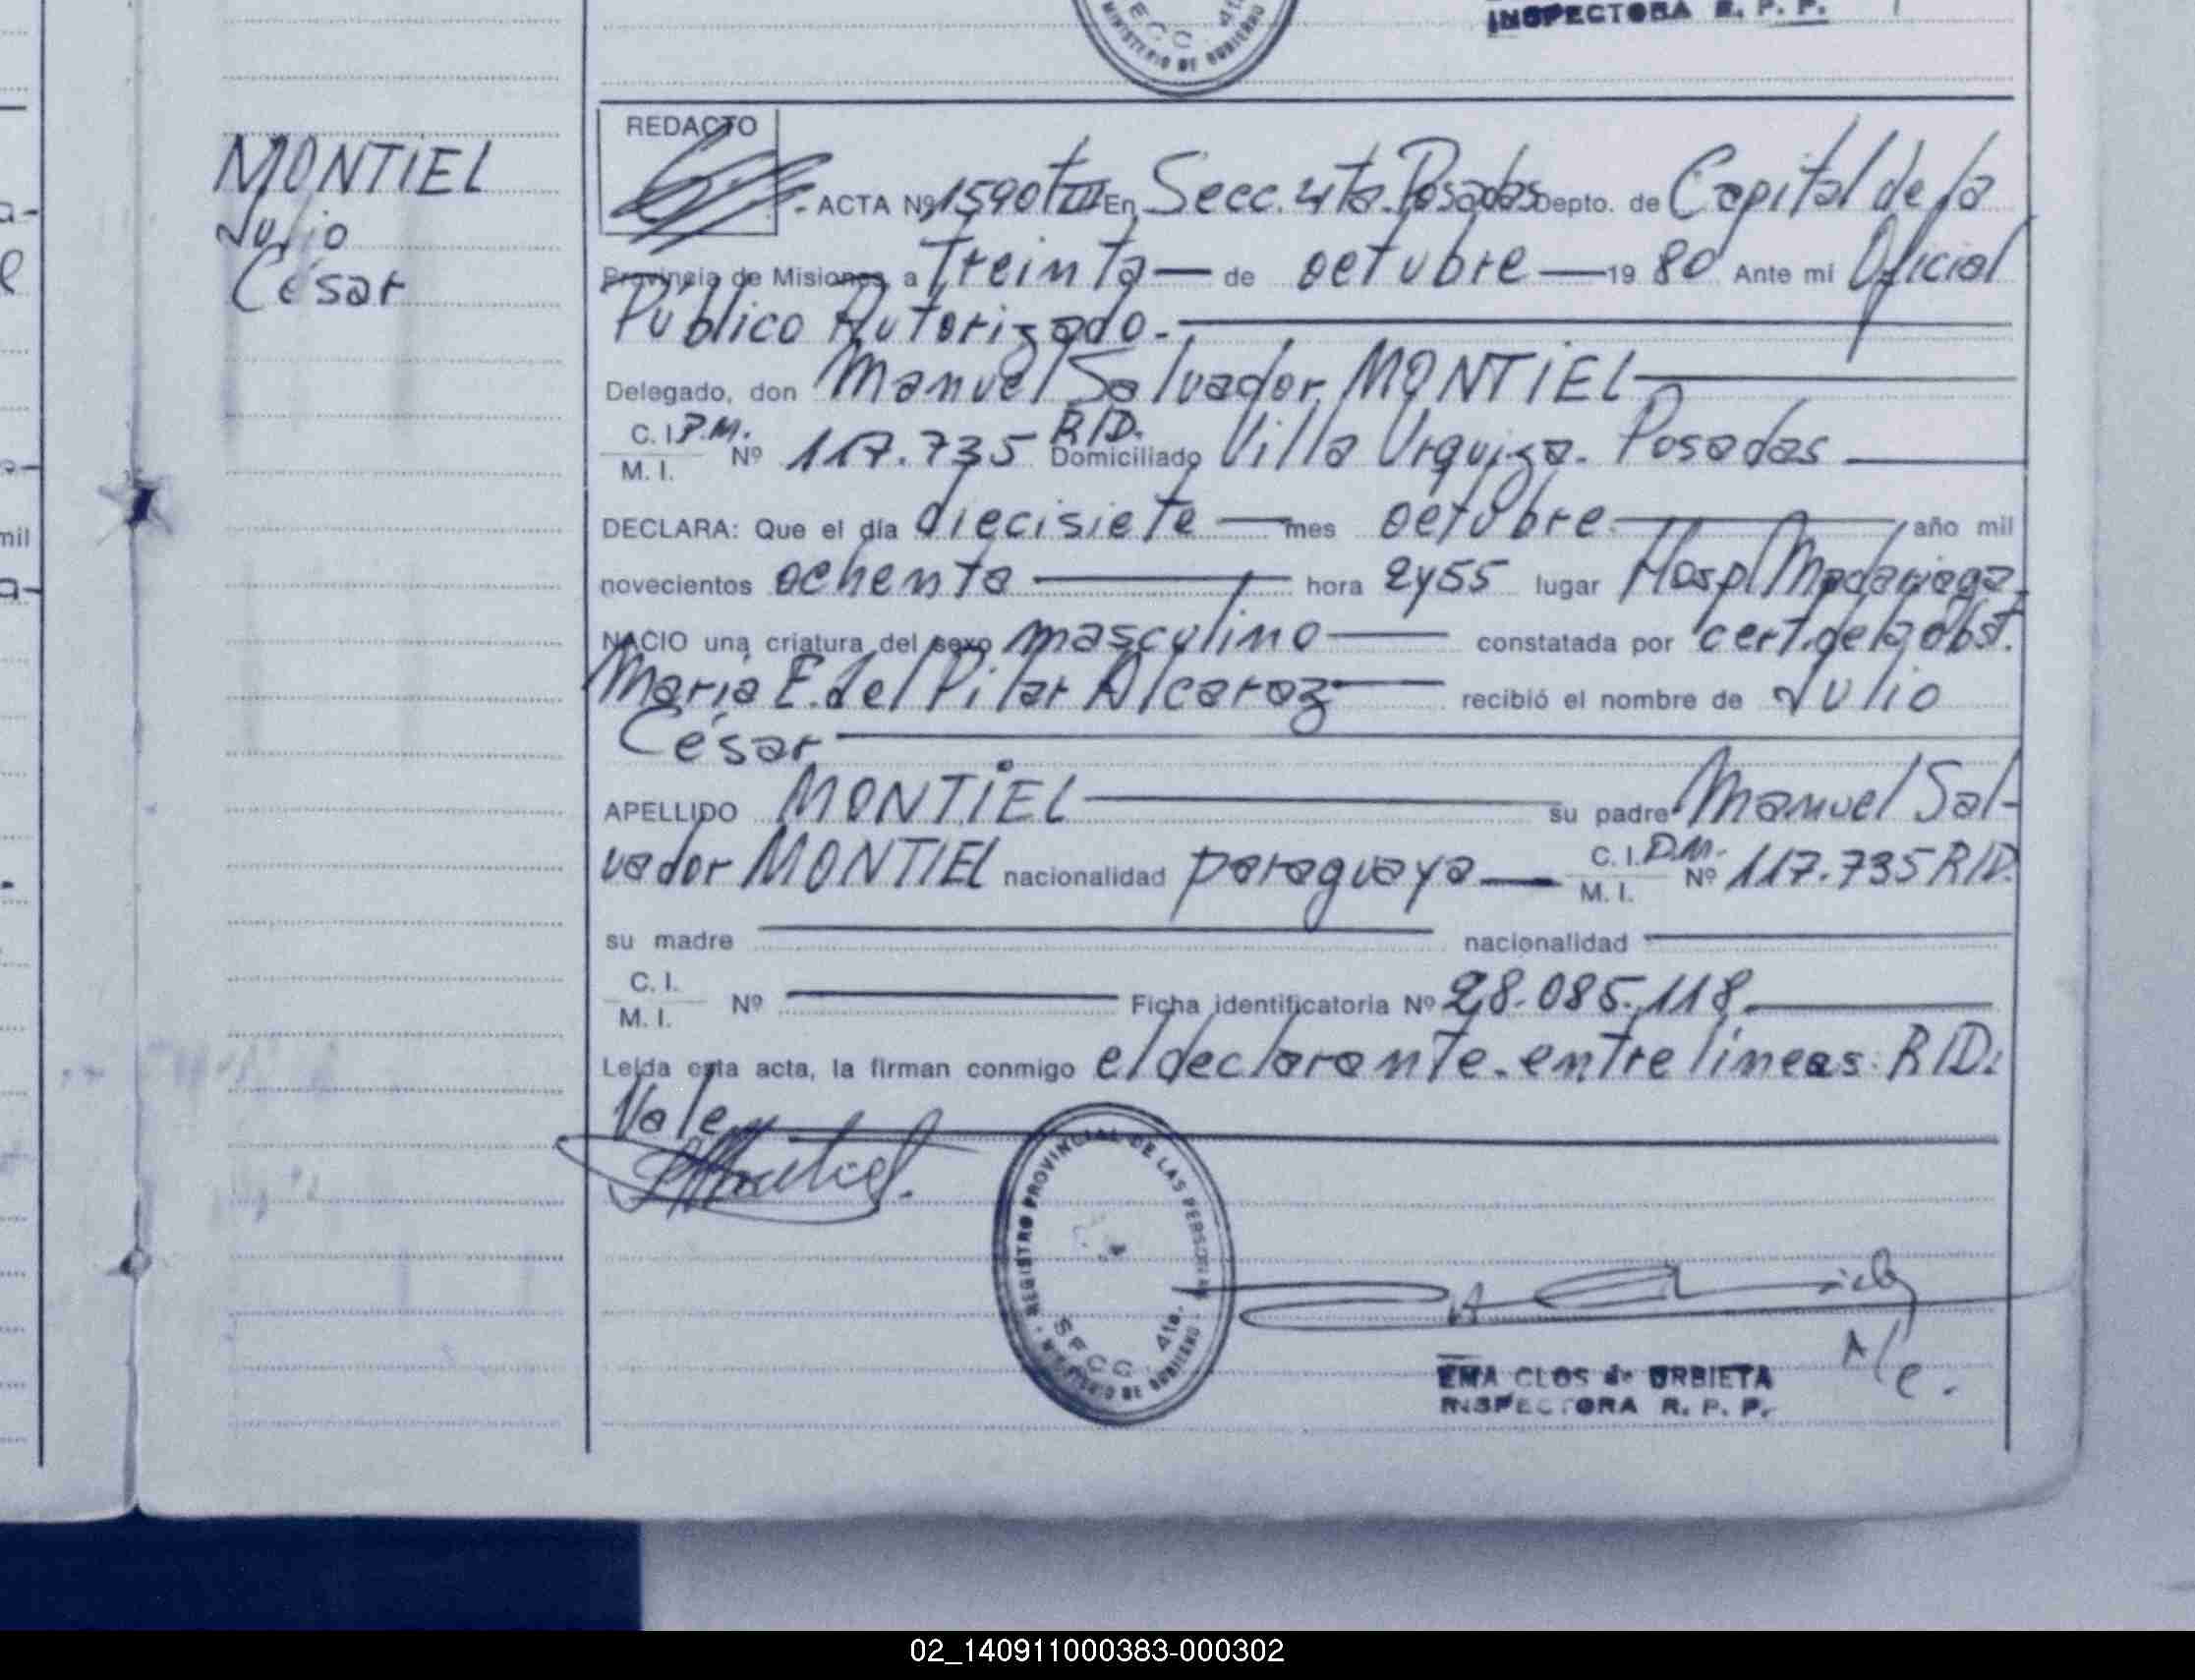 INSPECTORA R. P. P.
SECC. 4ta.
MINISTERIO DE GOBIERNO
MONTIEL
Julio
César
REDACTO
ACTA Nº 1590 tº III En Secc. 4ta. Posadas Depto. de Capital de la
Provincia de Misiones, a Treinta — de octubre — 19 80 Ante mi Oficial
Público Autorizado.-
Delegado, don Manuel Salvador MONTIEL
C. I. P.M. R/D.
M. I. Nº 117.735 Domiciliado Villa Urquiza. Posadas
DECLARA: Que el día diecisiete — mes octubre. año mil
novecientos ochenta hora 2y55 lugar Hosp. Madariaga
NACIO una criatura del sexo masculino constatada por cert. de la obst.
María E. del Pilar Alcaraz recibió el nombre de Julio
César
APELLIDO MONTIEL su padre Manuel Sal-
vador MONTIEL nacionalidad paraguaya C. I. P.M. M. I. Nº 117.735 R/D.
su madre nacionalidad
C. I. M. I. Nº Ficha identificatoria Nº 28.085.118
Leída esta acta, la firman conmigo el declarante. entre líneas: R/D:
Vale
REGISTRO PROVINCIAL DE LAS PERSONAS
SECC. 4ta.
MINISTERIO DE GOBIERNO
A/c.
EMA CLOS de URBIETA
INSPECTORA R. P. P.
02_140911000383-000302